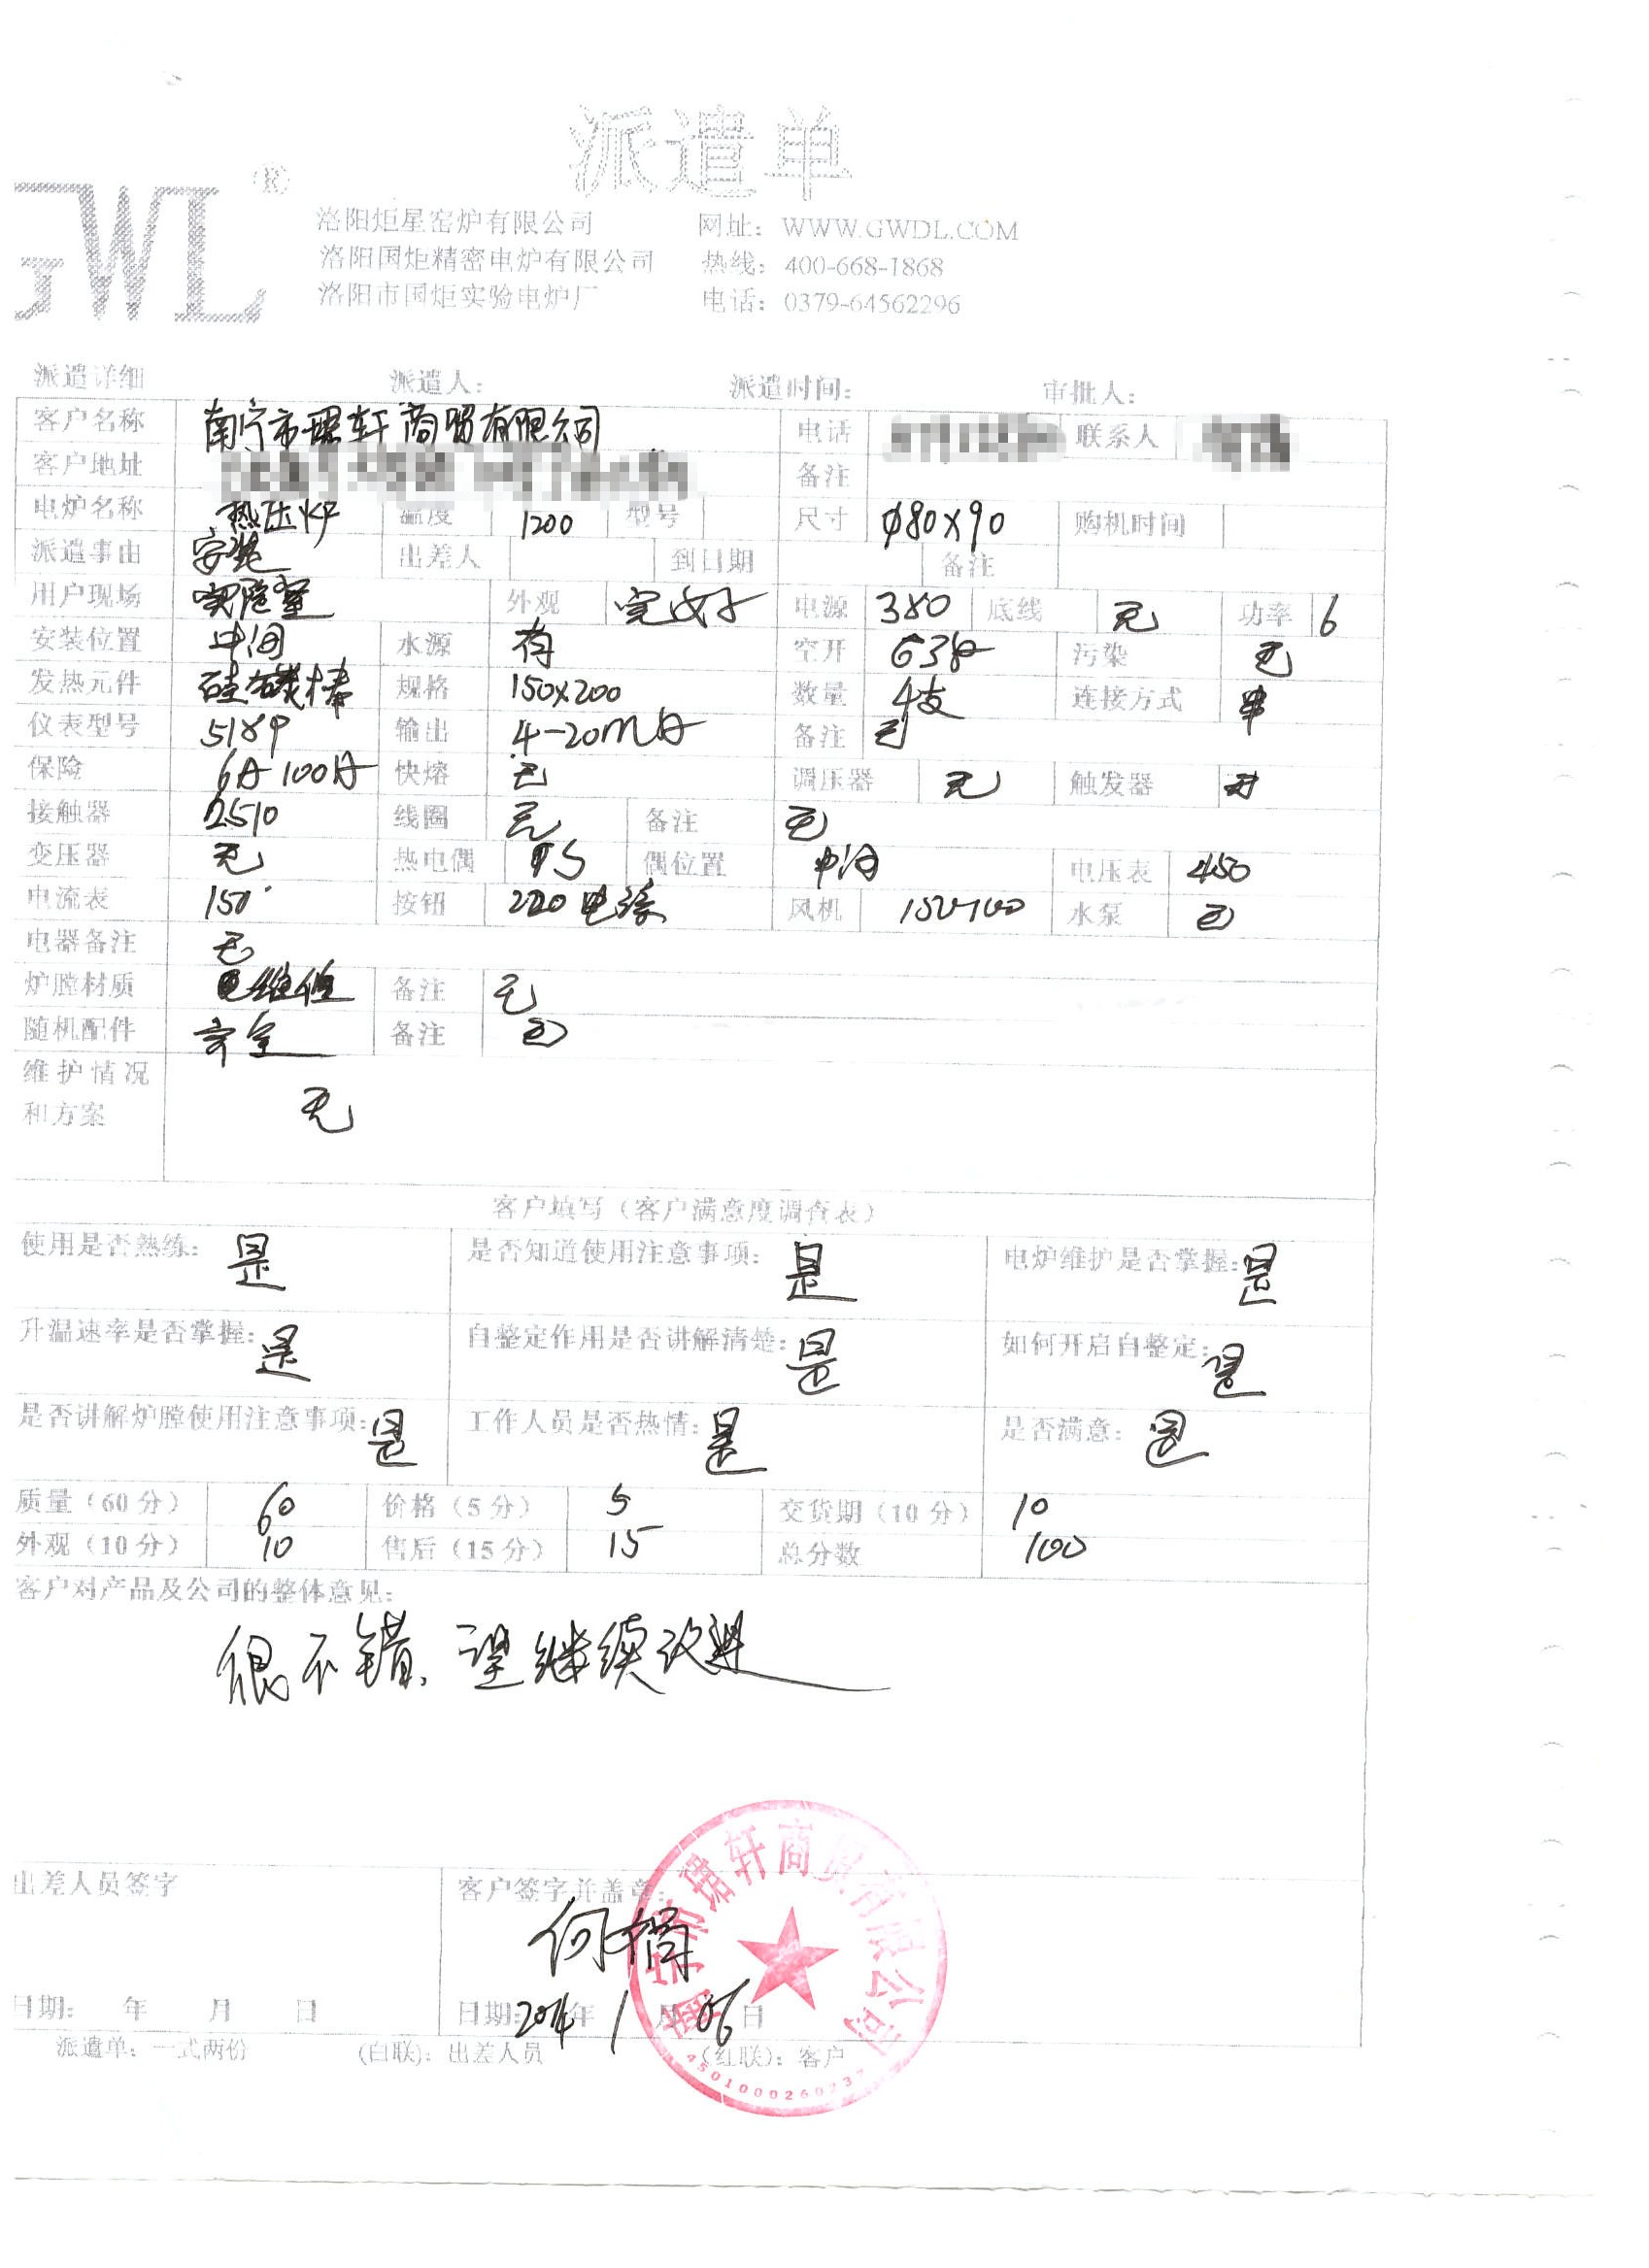 派遣单
GWL®
洛阳炬星窑炉有限公司 网址：WWW.GWDL.COM
洛阳国炬精密电炉有限公司 热线：400-668-1868
洛阳市国炬实验电炉厂 电话：0379-64562296
派遣详细 派遣人： 派遣时间： 审批人：
客户名称 南宁市珺轩商贸有限公司 电话 联系人
客户地址 备注
电炉名称 热压炉 温度 1200 型号 尺寸 φ80×90 购机时间
派遣事由 安装 出差人 到日期 备注
用户现场 实验室 外观 完好 电源 380 底线 无 功率 6
安装位置 中间 水源 有 空开 63A 污染 无
发热元件 硅碳棒 规格 150×200 数量 4支 连接方式 串
仪表型号 518P 输出 4-20mA 备注 无
保险 6A 100A 快熔 无 调压器 无 触发器
接触器 2510 线圈 无 备注 无
变压器 无 热电偶 S 偶位置 中间 电压表 450
电流表 150 按钮 220 风机 水泵 无
电器备注 无
炉膛材质 备注 无
随机配件 齐全 备注 无
维护情况
和方案 无
客户填写（客户满意度调查表）
使用是否熟练：是 是否知道使用注意事项：是 电炉维护是否掌握：是
升温速率是否掌握：是 自整定作用是否讲解清楚：是 如何开启自整定：是
是否讲解炉膛使用注意事项：是 工作人员是否热情：是 是否满意：是
质量（60分） 60 价格（5分） 5 交货期（10分） 10
外观（10分） 10 售后（15分） 15 总分数 100
客户对产品及公司的整体意见：
很不错，望继续改进
出差人员签字 客户签字并盖章：
南宁市珺轩商贸有限公司
日期： 年 月 日 日期：2014年1月06日
派遣单：一式两份 （白联）：出差人员 （红联）：客户